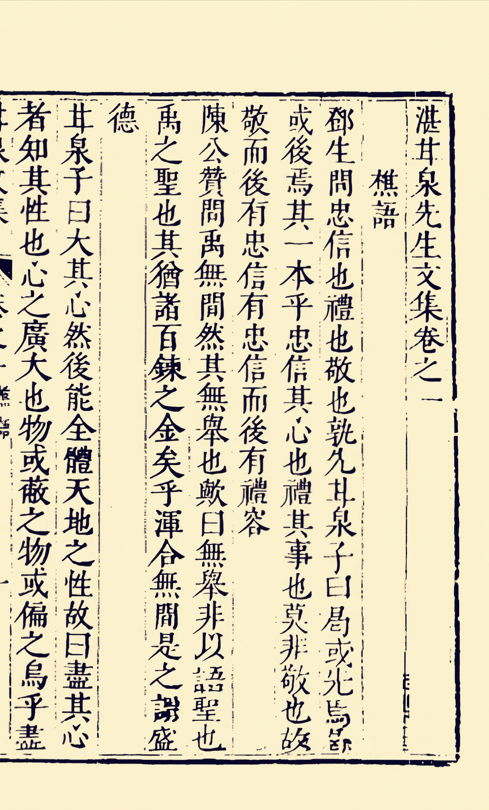 湛甘泉先生文集卷之一
樵語
鄧生問忠信也禮也敬也孰先甘泉子曰曷或先焉曷
或後焉其一本乎忠信其心也禮其事也莫非敬也故
敬而後有忠信有忠信而後有禮容
陳公贊問禹無間然其無舉也歟曰無舉非以語聖也
禹之聖也其猶諸百鍊之金矣乎渾合無間是之謂盛
德
甘泉子曰大其心然後能全體天地之性故曰盡其心
者知其性也心之廣大也物或蔽之物或偏之烏乎盡